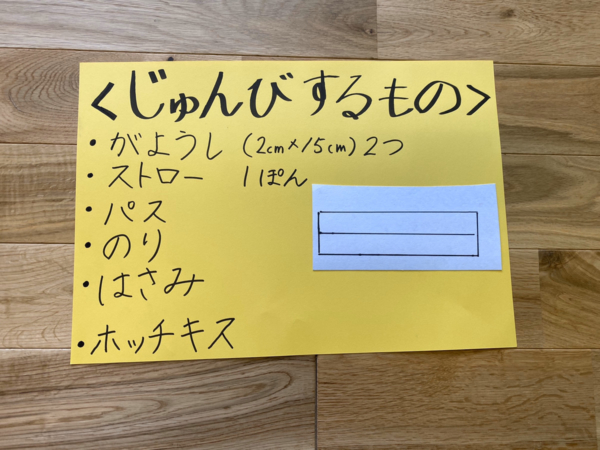 <じゅんびするもの>
・がようし (2cm×15cm) 2つ
・ストロー 1ぽん
・パス
・のり
・はさみ
・ホッチキス